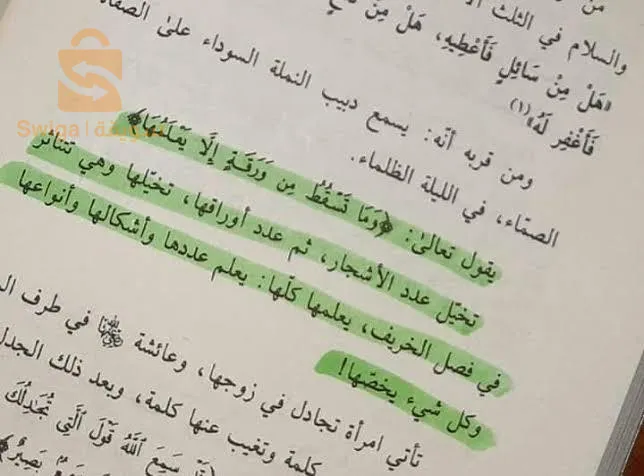 من
والسلام في الثلث ال
«هَلْ مِنْ سَائِلٍ فَأُعْطِيهِ، هَلْ مِنْ
فَأَغْفِر لَهُ»(١)
ومن قربه أنّه: يسمع دبيب النملة السوداء على الصفاة
الصمّاء، في الليلة الظلماء.
يقول تعالى: ﴿وَمَا تَسْقُطُ مِن وَرَقَةٍ إِلَّا يَعْلَمُهَا﴾
تخيّل عدد الأشجار، ثم عدد أوراقها، تخيّلها وهي تتناثر
في فصل الخريف، يعلمها كلّها: يعلم عددها وأشكالها وأنواعها
وكل شيء يخصّها!
تأتي امرأة تجادل في زوجها، وعائشة ﷺ في طرف ال
كلمة وتغيب عنها كلمة، وبعد ذلك الجدل
سَمِعَ ٱللَّهُ قَوْلَ ٱلَّتِي تُجَٰدِلُكَ
بَصِيرٌ﴾
Swiqa | سويقة